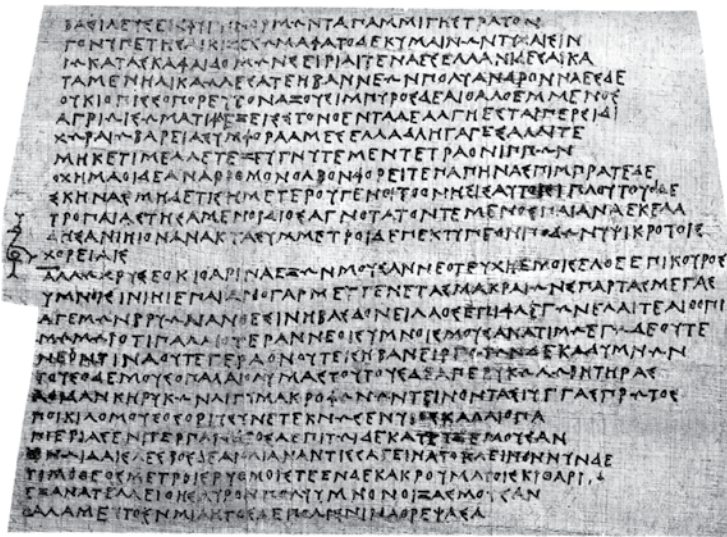 ΒΑΣΙΛΕΥΣΕΙΣΦΥΓΗΝΟΡΜΩΝΤΑΠΑΜΜΙΓΗΣΤΡΑΤΟΝ
ΓΟΝΥΠΕΤΗΣΑΙΚΙΖΕΣΩΜΑΦΑΤΟΔΕΚΥΜΑΙΝΩΝΤΥΧΑΙΣΙΝ
ΙΩΚΑΤΑΣΚΑΦΑΙΔΟΜΩΝΣΕΙΡΙΑΙΤΕΝΑΕΣΕΛΛΑΝΙΔΕΣΑΙΚΑ
ΤΑΜΕΝΗΛΙΚΑΩΛΕΣΑΤΕΗΒΑΝΝΕΩΝΠΟΛΥΑΝΔΡΟΝΝΑΕΣΔΕ
ΟΥΚΙΟΠΙΣΣΟΠΟΡΕΥΤΟΝΑΞΟΥΣΙΜΠΥΡΟΣΔΕΑΙΘΑΛΟΕΜΜΕΝΟΣ
ΑΓΡΙΩΙΣΩΜΑΤΙΦΛΕΞΕΙΣΤΟΝΟΕΝΤΑΔΕΑΛΓΗΕΣΤΑΙΠΕΡΣΙΔΙ
ΧΩΡΑΙΩΒΑΡΕΙΑΣΥΜΦΟΡΑΑΜΕΣΕΛΛΑΔΑΗΓΑΓΕΣΑΛΛΑΙΤΕ
ΜΗΚΕΤΙΜΕΛΛΕΤΕΖΕΥΓΝΥΤΕΜΕΝΤΕΤΡΑΟΝΙΠΠΩΝ
ΟΧΗΜΑΟΙΔΕΑΝΑΡΙΘΜΟΝΟΛΒΟΝΦΟΡΕΙΤΕΝΑΠΗΝΑΣΠΙΜΠΡΑΤΕΔΕ
ΣΚΗΝΑΣΜΗΔΕΤΙΣΗΜΕΤΕΡΟΥΓΕΝΟΙΤΟΟΝΗΣΙΣΑΥΤΟΙΣΙΠΛΟΥΤΟΥΟΙΔΕ
ΤΡΟΠΑΙΑΣΤΗΣΑΜΕΝΟΙΔΙΟΣΑΓΝΟΤΑΤΟΝΤΕΜΕΝΟΣΠΑΙΑΝΑΕΚΕΛΑ
ΔΗΣΑΝΙΗΙΟΝΑΝΑΚΤΑΣΥΜΜΕΤΡΟΙΔΕΠΕΚΤΥΠΕΟΝΠΟΔΩΝΥΨΙΚΡΟΤΟΙΣ
ΧΟΡΕΙΑΙΣ
ΑΛΛΩΧΡΥΣΕΟΚΙΘΑΡΙΝΑΕΞΩΝΜΟΥΣΑΝΝΕΟΤΕΥΧΗΕΜΟΙΣΕΛΘΕΕΠΙΚΟΥΡΟΣ
ΥΜΝΟΙΣΙΝΙΗΙΕΠΑΙΑΝΟΓΑΡΜΕΥΓΕΝΕΤΑΣΜΑΚΡΑΙΩΝΣΠΑΡΤΑΣΜΕΓΑΣ
ΑΓΕΜΩΝΒΡΥΩΝΑΝΘΕΣΙΝΗΒΑΣΔΟΝΕΙΛΑΟΣΕΠΙΦΛΕΓΩΝΕΛΑΙΤΕΑΙΘΟΠΙ
ΜΩΜΩΙΟΤΙΠΑΛΑΙΟΤΕΡΑΝΝΕΟΙΣΥΜΝΟΙΣΜΟΥΣΑΝΑΤΙΜΩΕΓΩΔΕΟΥΤΕ
ΝΕΟΝΤΙΝΑΟΥΤΕΓΕΡΑΟΝΟΥΤΕΙΣΗΒΑΝΕΙΡΓΩΤΩΝΔΕΚΑΔΥΜΝΩΝ
ΤΟΥΣΟΔΕΜΟΥΣΟΠΑΛΑΙΟΛΥΜΑΣΤΟΥΤΟΥΣΔΕΑΠΕΡΥΚΩΛΩΒΗΤΗΡΑΣ
ΑΟΙΔΑΝΚΗΡΥΚΩΝΛΙΓΥΜΑΚΡΟΦΩΝΩΝΤΕΙΝΟΝΤΑΣΙΥΓΓΑΣΠΡΩΤΟΣ
ΠΟΙΚΙΛΟΜΟΥΣΟΣΟΡΙΥΣΥΝΕΤΕΚΝΩΣΕΝΥΙΟΣΚΑΛΛΙΟΠΑ
ΠΙΕΡΙΑΣΕΝΙΤΕΡΠΑΝΔΡΟΣΕΠΙΤΩΙΔΕΚΑΤΕΥΞΕΜΟΥΣΑΝ
ΕΝΩΙΔΑΙΣΛΕΣΒΟΣΔΕΑΙΟΛΙΑΝΑΝΤΙΣΣΑΓΕΙΝΑΤΟΚΛΕΙΝΟΝΝΥΝΔΕ
ΤΙΜΟΘΕΟΣΜΕΤΡΟΙΣΡΥΘΜΟΙΣΤΕΕΝΔΕΚΑΚΡΟΥΜΑΤΟΙΣΚΙΘΑΡΙ
ΕΞΑΝΑΤΕΛΛΕΙΘΗΣΑΥΡΟΝΠΟΛΥΥΜΝΟΝΟΙΞΑΣΜΟΥΣΑΝ
ΘΑΛΑΜΕΥΤΟΝΜΙΛΗΤΟΣΔΕΠΟΛΙΣΝΙΝΑΘΡΕΨΑΣΑ